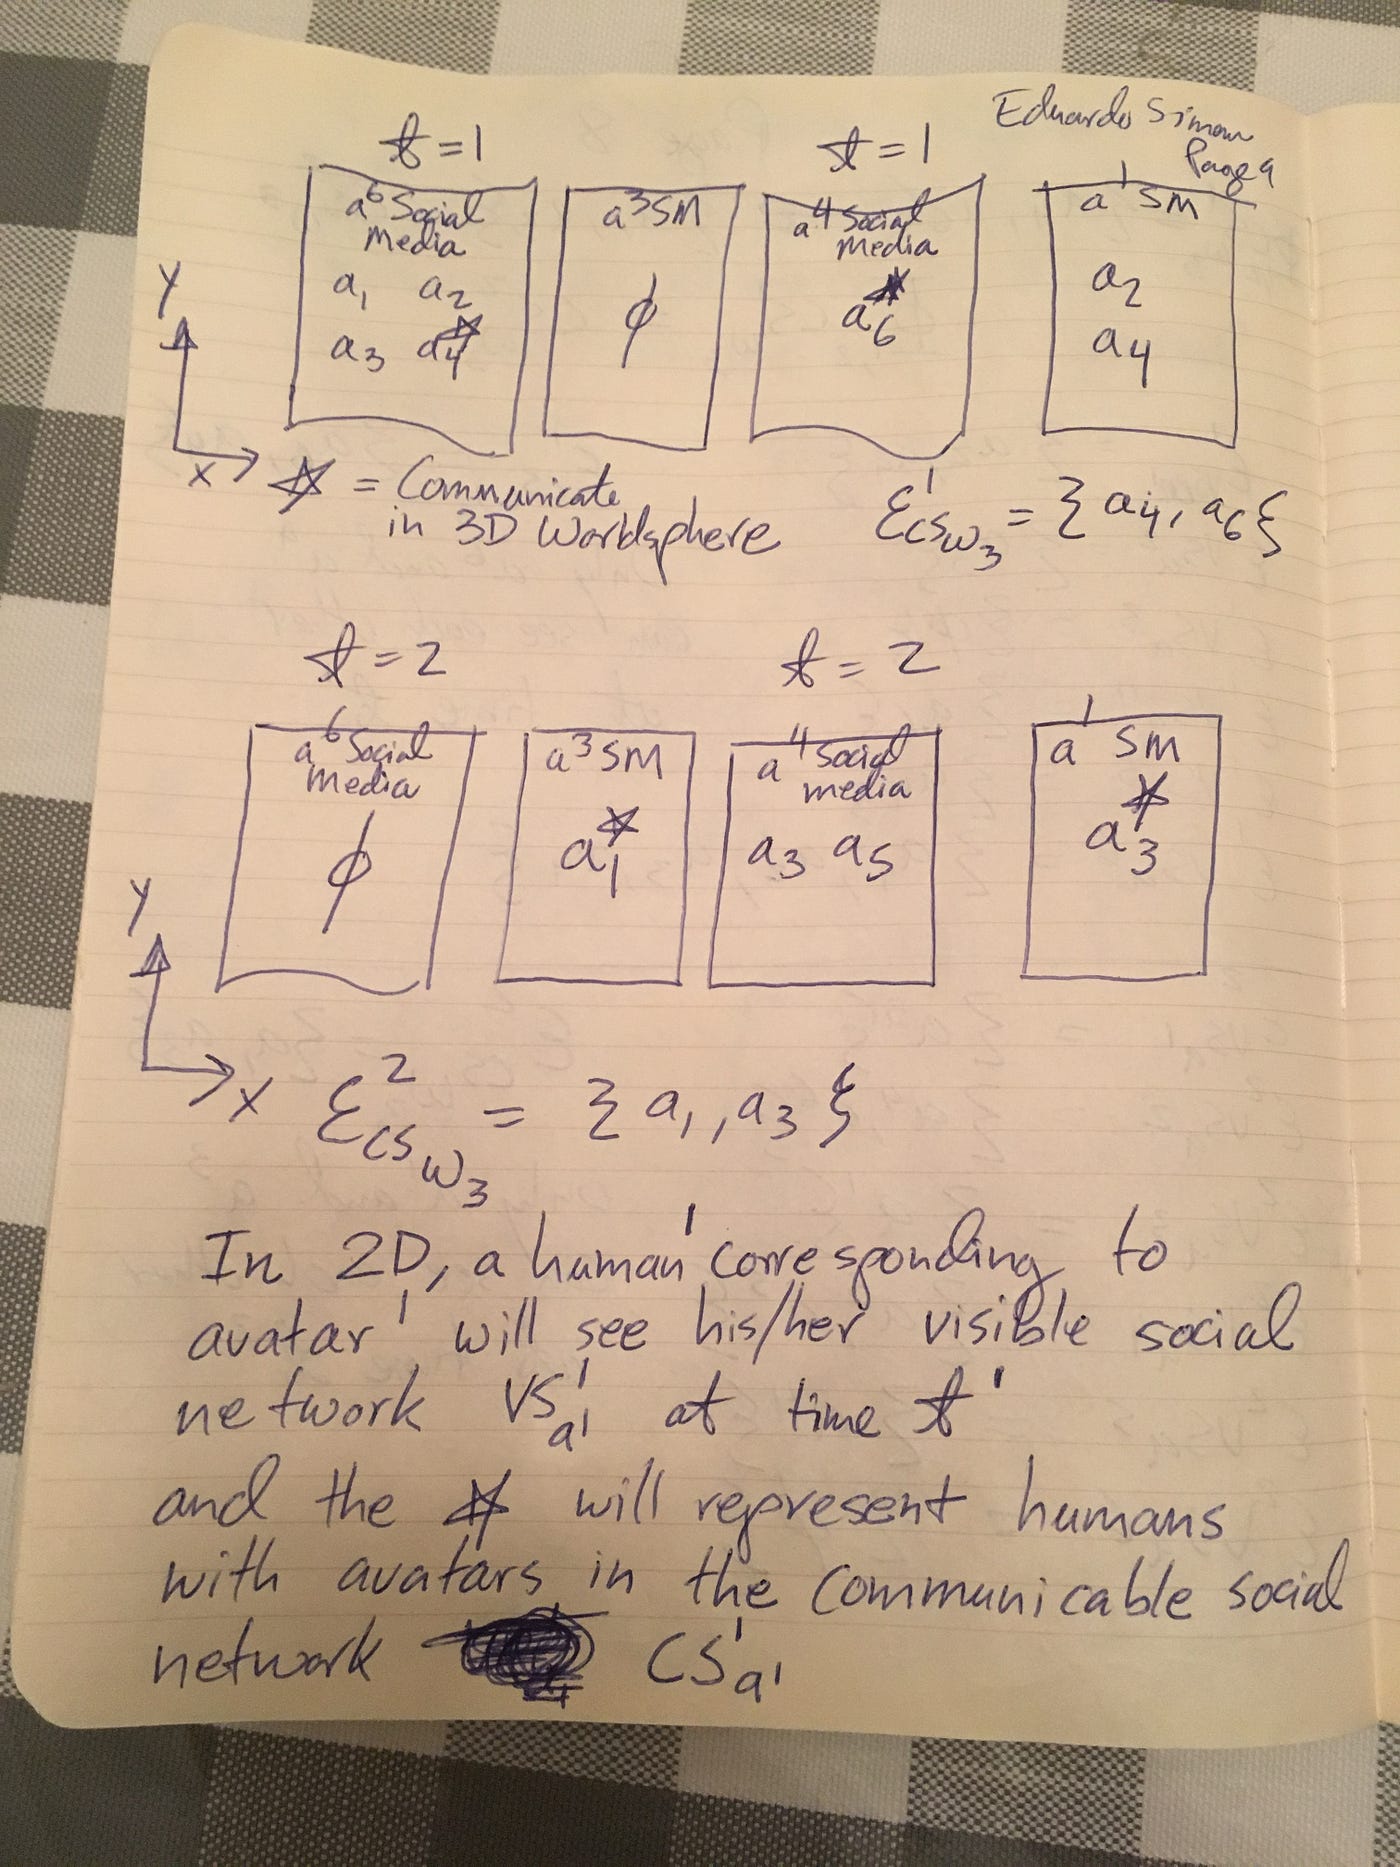 Eduardo Simon
Page 9
t=1 t=1
a⁶ Social Media a³ SM a⁴ Social Media a¹ SM
a₁ a₂ ϕ a₆☆ a₂
a₃ a₄☆ a₄
y
x
☆ = Communicate
in 3D Worldsphere
ℰ¹CSW₃ = {a₄, a₆}
t=2 t=2
a⁶ Social Media a³ SM a⁴ Social media a¹ SM
ϕ a₁☆ a₃ a₅ a₃☆
y
x
ℰ²CSW₃ = {a₁, a₃}
In 2D, a human¹ corresponding to
avatar¹ will see his/her visible social
network VS¹a¹ at time t¹
and the ☆ will represent humans
with avatars in the communicable social
network CS¹a¹